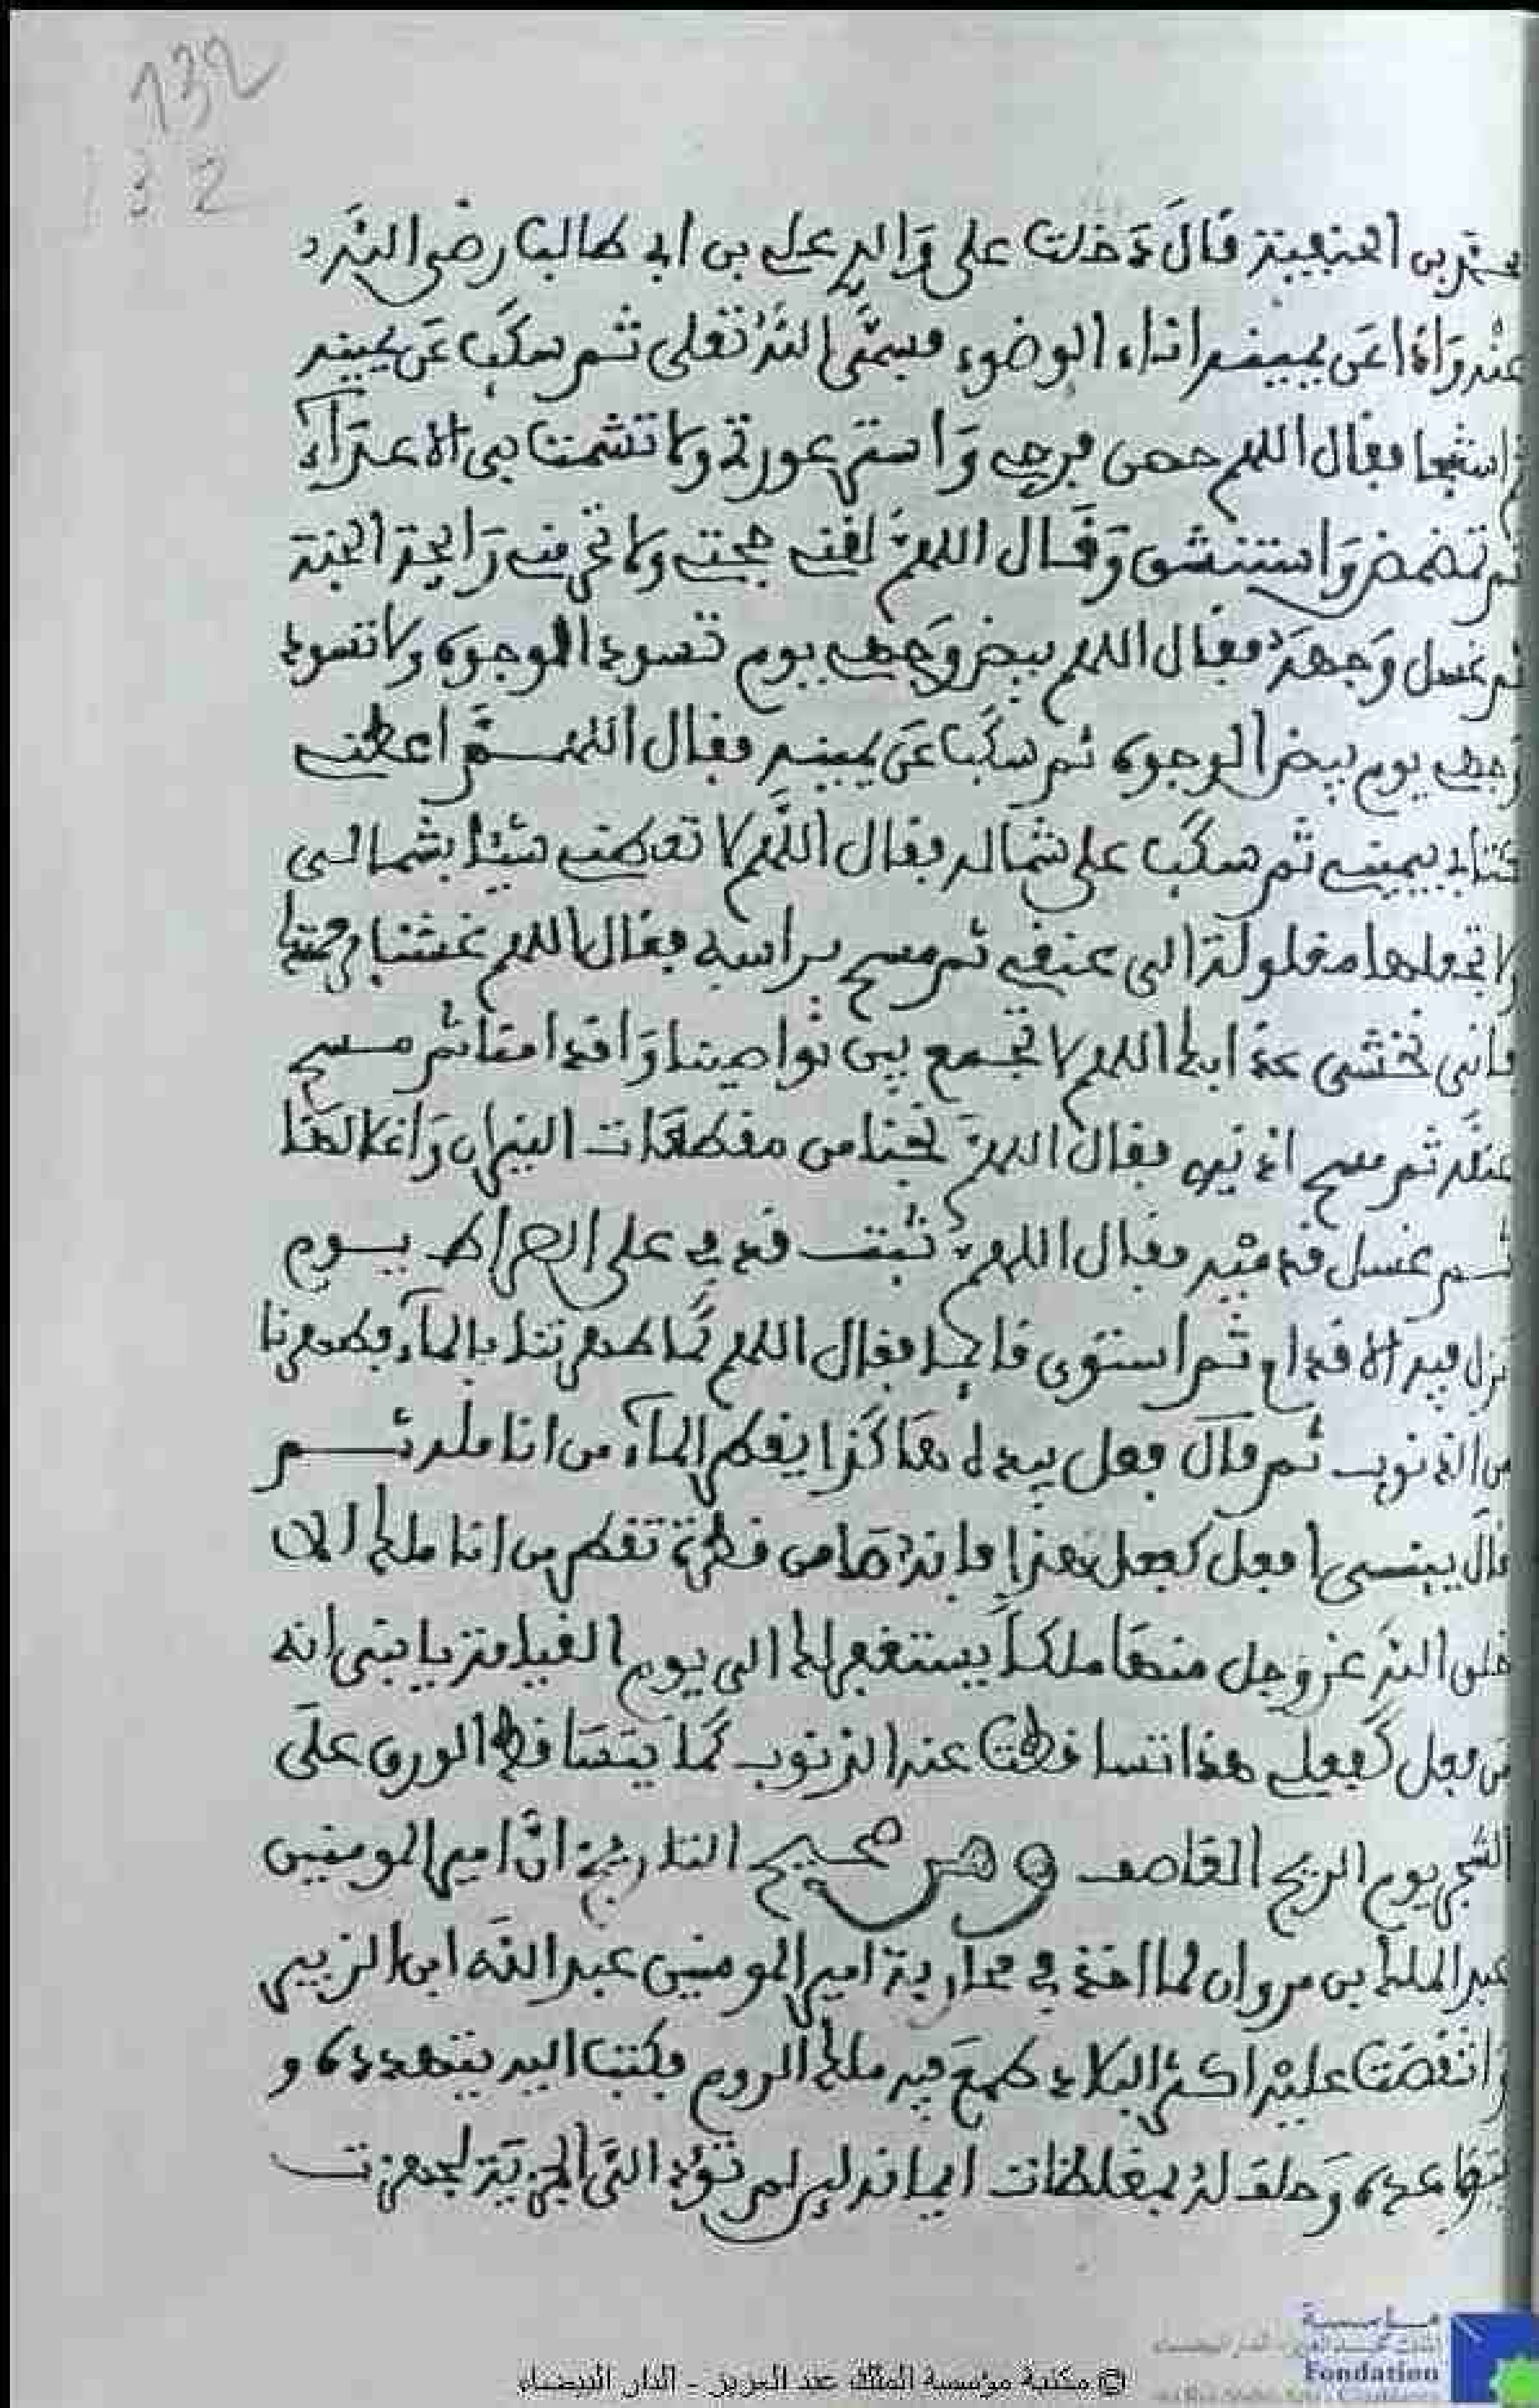 132
132
بن الحنفية قال دخلت على والدي علي بن ابي طالب رضي الله
عنه واذا عن يمينه اناء الوضوء فسمى الله تعلى ثم سكب عن يمينه
ثم استنجا فقال اللهم حصن فرجي واستر عورتي ولا تشمت بي الاعدآء
ثم تمضمض واستنشق وقال اللهم لقني حجتي ولا تحرمني رايحة الجنة
ثم غسل وجهه فقال اللهم بيض وجهي يوم تسود الوجوه ولا تسود
وجهي يوم تبيض الوجوه ثم سكب عن يمينه فقال اللهم اعطني
كتابي بيميني ثم سكب على شماله فقال اللهم لا تعطني شيئا بشمالي
ولا تجعلها مغلولة الى عنقي ثم مسح براسه فقال اللهم غشنا رحمتك
فاني نخشى عذابك اللهم لا تجمع بين نواصينا واقدامنا ثم مسح
عنقه ثم مسح اذنيه فقال اللهم نجنا من مقطعات النيران واغلالها
ثم غسل قدميه فقال اللهم ثبت قدمي على الصراط يوم
تزل فيه الاقدام ثم استوى قايما فقال اللهم كما طهرتنا بالمآء فطهرنا
من الذنوب ثم قال فعل بيده هاكذا يقطر المآء من انامله ثم
قال يبنى افعل كفعلي هذا فانه ما من قطرة تقطر من اناملك الا
خلق الله عز وجل منها ملكا يستغفر لك الى يوم القيامة يا بني انه
من فعل كفعلي هذا تساقطت عنه الذنوب كما يتساقط الورق على
الشجر يوم الريح القاصف ومن صحيح التاريخ ان امير المومنين
عبد الملك بن مروان لما اخذ في محاربة امير المومنين عبد الله ابن الزبير
وانتقضت عليه اكثر البلاد طمع فيه ملك الروم فكتب اليه يتهدده و
يتواعده وحلف له بمغلظات ايمانه لين لم تؤد التي الجزية لجهزت
مؤسسة
Fondation
© مكتبة مؤسسة الملك عبد العزيز - الدار البيضاء